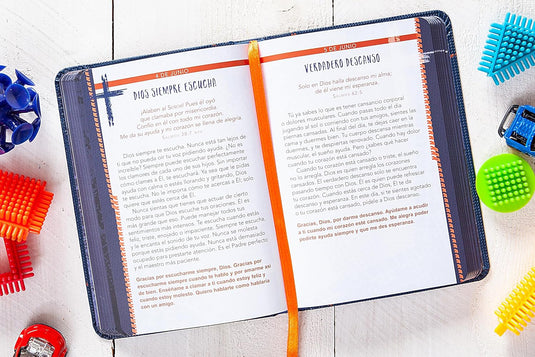 4 DE JUNIO
DIOS SIEMPRE ESCUCHA
¡Alaben al Señor! Pues él oyó
que clamaba por misericordia.
Confío en él con todo mi corazón.
Me da su ayuda y mi corazón se llena de alegría.
Dios siempre te escucha. Nunca está tan lejos de ti
que no pueda oír tu voz pidiendo ayuda. ¿No es
increíble que Dios pueda escuchar perfectamente
los clamores de cada uno de sus hijos. Sin importar
cómo clames a Él, te escuchará. Ya sea que le pidas
ayuda con calma o estés llorando y gritando, Dios
te escucha. No le importa cómo te acercas a Él; solo
quiere que estés cerca de Él.
Nunca sientas que tienes que actuar de cierto
modo para que Dios escuche tus oraciones. Él es
más grande que eso. Puede manejar todos tus
sentimientos más intensos. Te escucha cuando estás
feliz, triste, enojado o impaciente. Siempre escucha,
y le encanta el sonido de tu voz. Nunca se molesta
porque estás pidiendo ayuda. Nunca está demasiado
ocupado para prestarte atención. Es el Padre perfecto
y el maestro más paciente.
Gracias por escucharme siempre, Dios. Gracias por
escucharme siempre cuando te hablo y por amarme así
de bien. Enséñame a clamar a ti cuando estoy feliz y
cuando estoy molesto. Quiero hablarte como hablaría
con un amigo.
5 DE JUNIO
VERDADERO DESCANSO
Solo en Dios halla descanso mi alma;
de él viene mi esperanza.
Salmos 62:5
Tú ya sabes lo que es tener cansancio corporal
o dolores musculares. Cuando pasas todo el día
jugando al sol o corriendo con tus amigos, sientes las
piernas cansadas. Al final del día, te dejas caer en la
cama y duermes bien. Tu cuerpo descansa mientras
duermes, y te despiertas renovado. Cuando hay dolor
muscular, el sueño ayuda. Pero ¿sabes qué hacer
cuando tu corazón está cansado?
Cuando tu corazón está cansado o triste, el sueño
no lo arregla. Dios es quien arregla los corazones
cansados. El verdadero descanso solo se encuentra
pasando tiempo con Dios. Él es quien puede refrescar
tu corazón. Cuando estás cerca de Dios, Él te da
descanso y esperanza. En este día, si te sientes agotado
o tu corazón está cansado, pídele a Dios descanso.
Gracias, Dios, por darnos descanso. Ayúdame a acudir
a ti cuando mi corazón esté cansado. Me alegra poder
pedirte ayuda siempre y que me des esperanza.